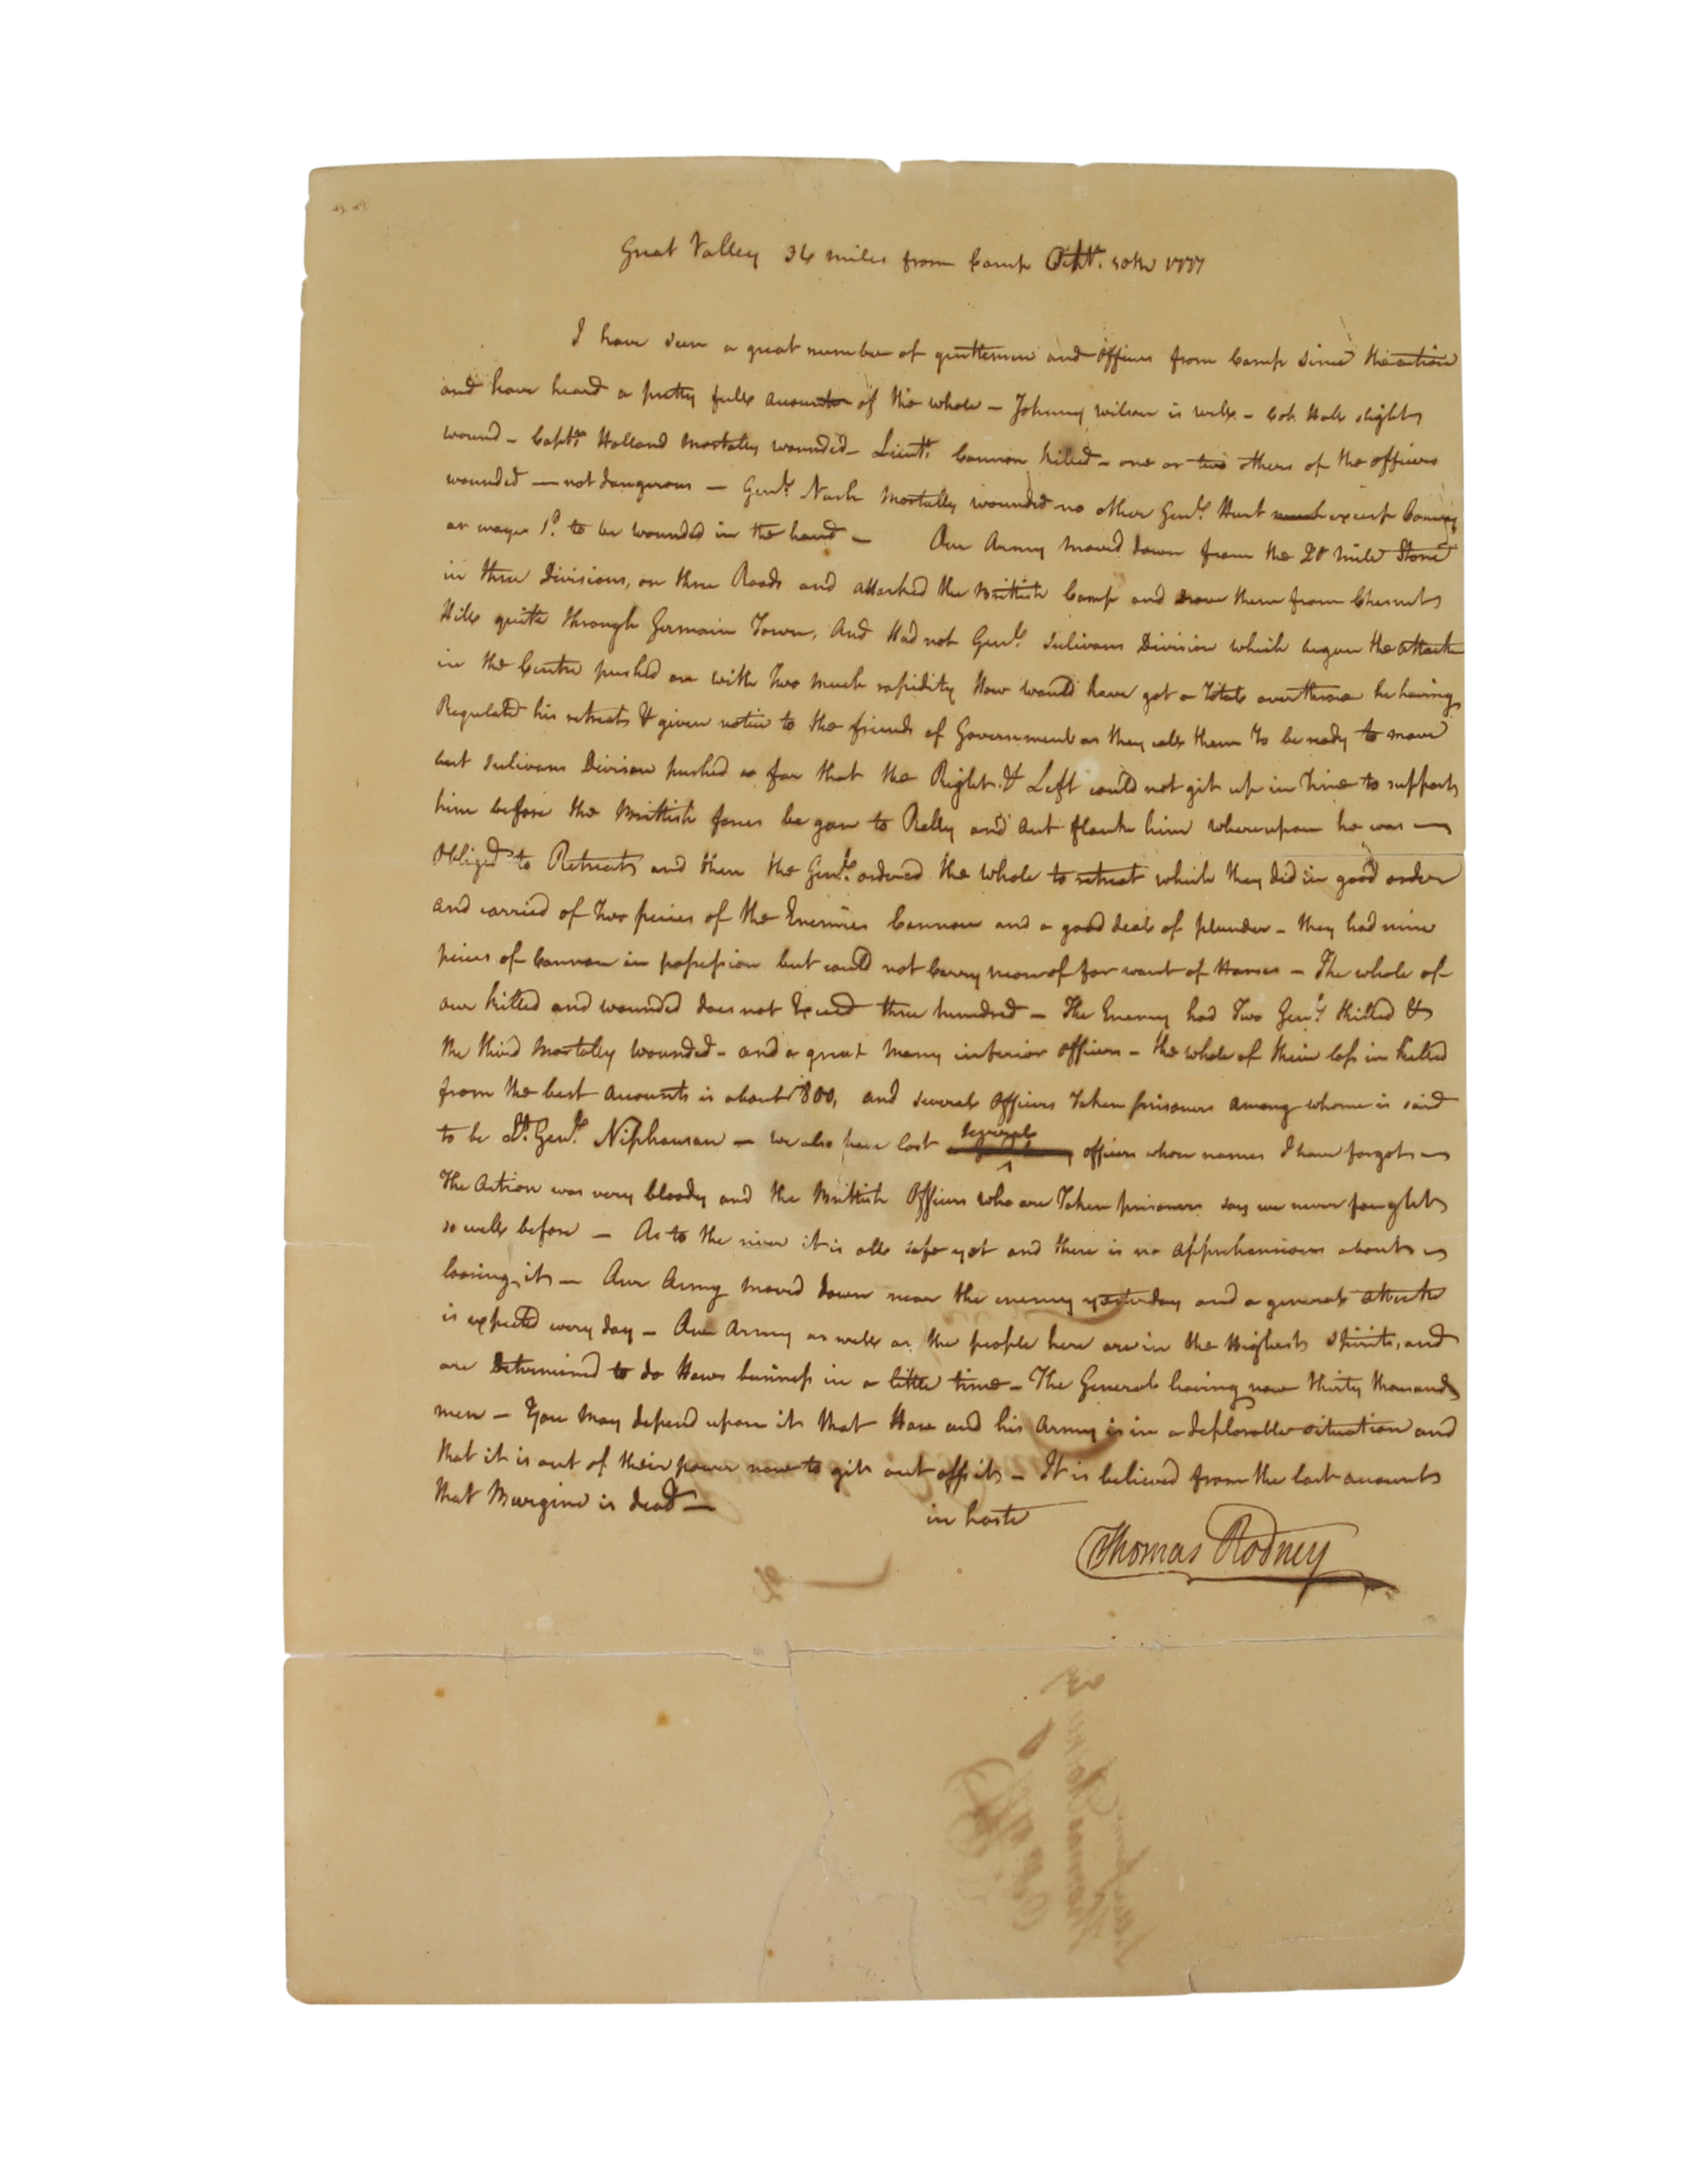 Great Valley 36 miles from Camp Octbr. 10th 1777
I have seen a great number of gentlemen and officers from Camp since the action
and have heard a pretty full account of the whole – Johnny wilson is well – Col. Hall slight
wound – Captn. Holland Mortally wounded – Lieutt. Cannon killed – one or two others of the officers
wounded — not dangerous — Genl. Nash Mortally wounded no other Genl. Hurt except Conway
or wayn Sd. to be wounded in the hand – Our Army moved down from the 20 Mile Stone
in three Divisions, on three Roads and attacked the Brittish Camp and drove them from Chesnut
Hill quite through Germain Town, And Had not Genl. Sulivans Division which began the attack
in the Centre pushed on with Two Much rapidity How would have got a Total overthrow he having
Regulated his retreat & given notice to the friends of Government as they call them To be ready to move
but Sulivans Divison pushed so far that the Right & Left could not git up in Time to support
him before the Brittish forces began to Rally and out flank him whereupon he was —
Obliged to Retreat and then the Genl. ordered the whole to retreat which they did in good order
and carried of Two peices of the Enemies Cannon and a good deal of plunder – they had nine
peices of Cannon in possession but could not Carry mon of for want of Horses – The whole of
our killed and wounded does not Exceed three hundred – The Enemy had Two Genls. Killed &
the third Mortally wounded – and a great Many inferior officers – the whole of their loss in killed
from the best accounts is about 800, and several officers Taken prisoners among whome is said
to be Lt. Genl. Niphausan — we also have lost several officers whose names I have forgot —
The Action was very bloody and the Brittish Officers who are Taken prisoners say we never fought
so well before — As to the river it is all safe yet and there is no apprehensions about —
loosing it — Our Army moved down near the enemy yesterday and a general attack
is expected every day — Our Army as well as the people here are in the Highest Spirits, and
are Determined to do Hows business in a little time – The General having now thirty thousand
men — You May depend upon it that How and his Army is in a deplorable situation and
that it is out of their power now to git out off it – It is believed from the last accounts
that Burgine is dead —
in haste
Thomas Rodney